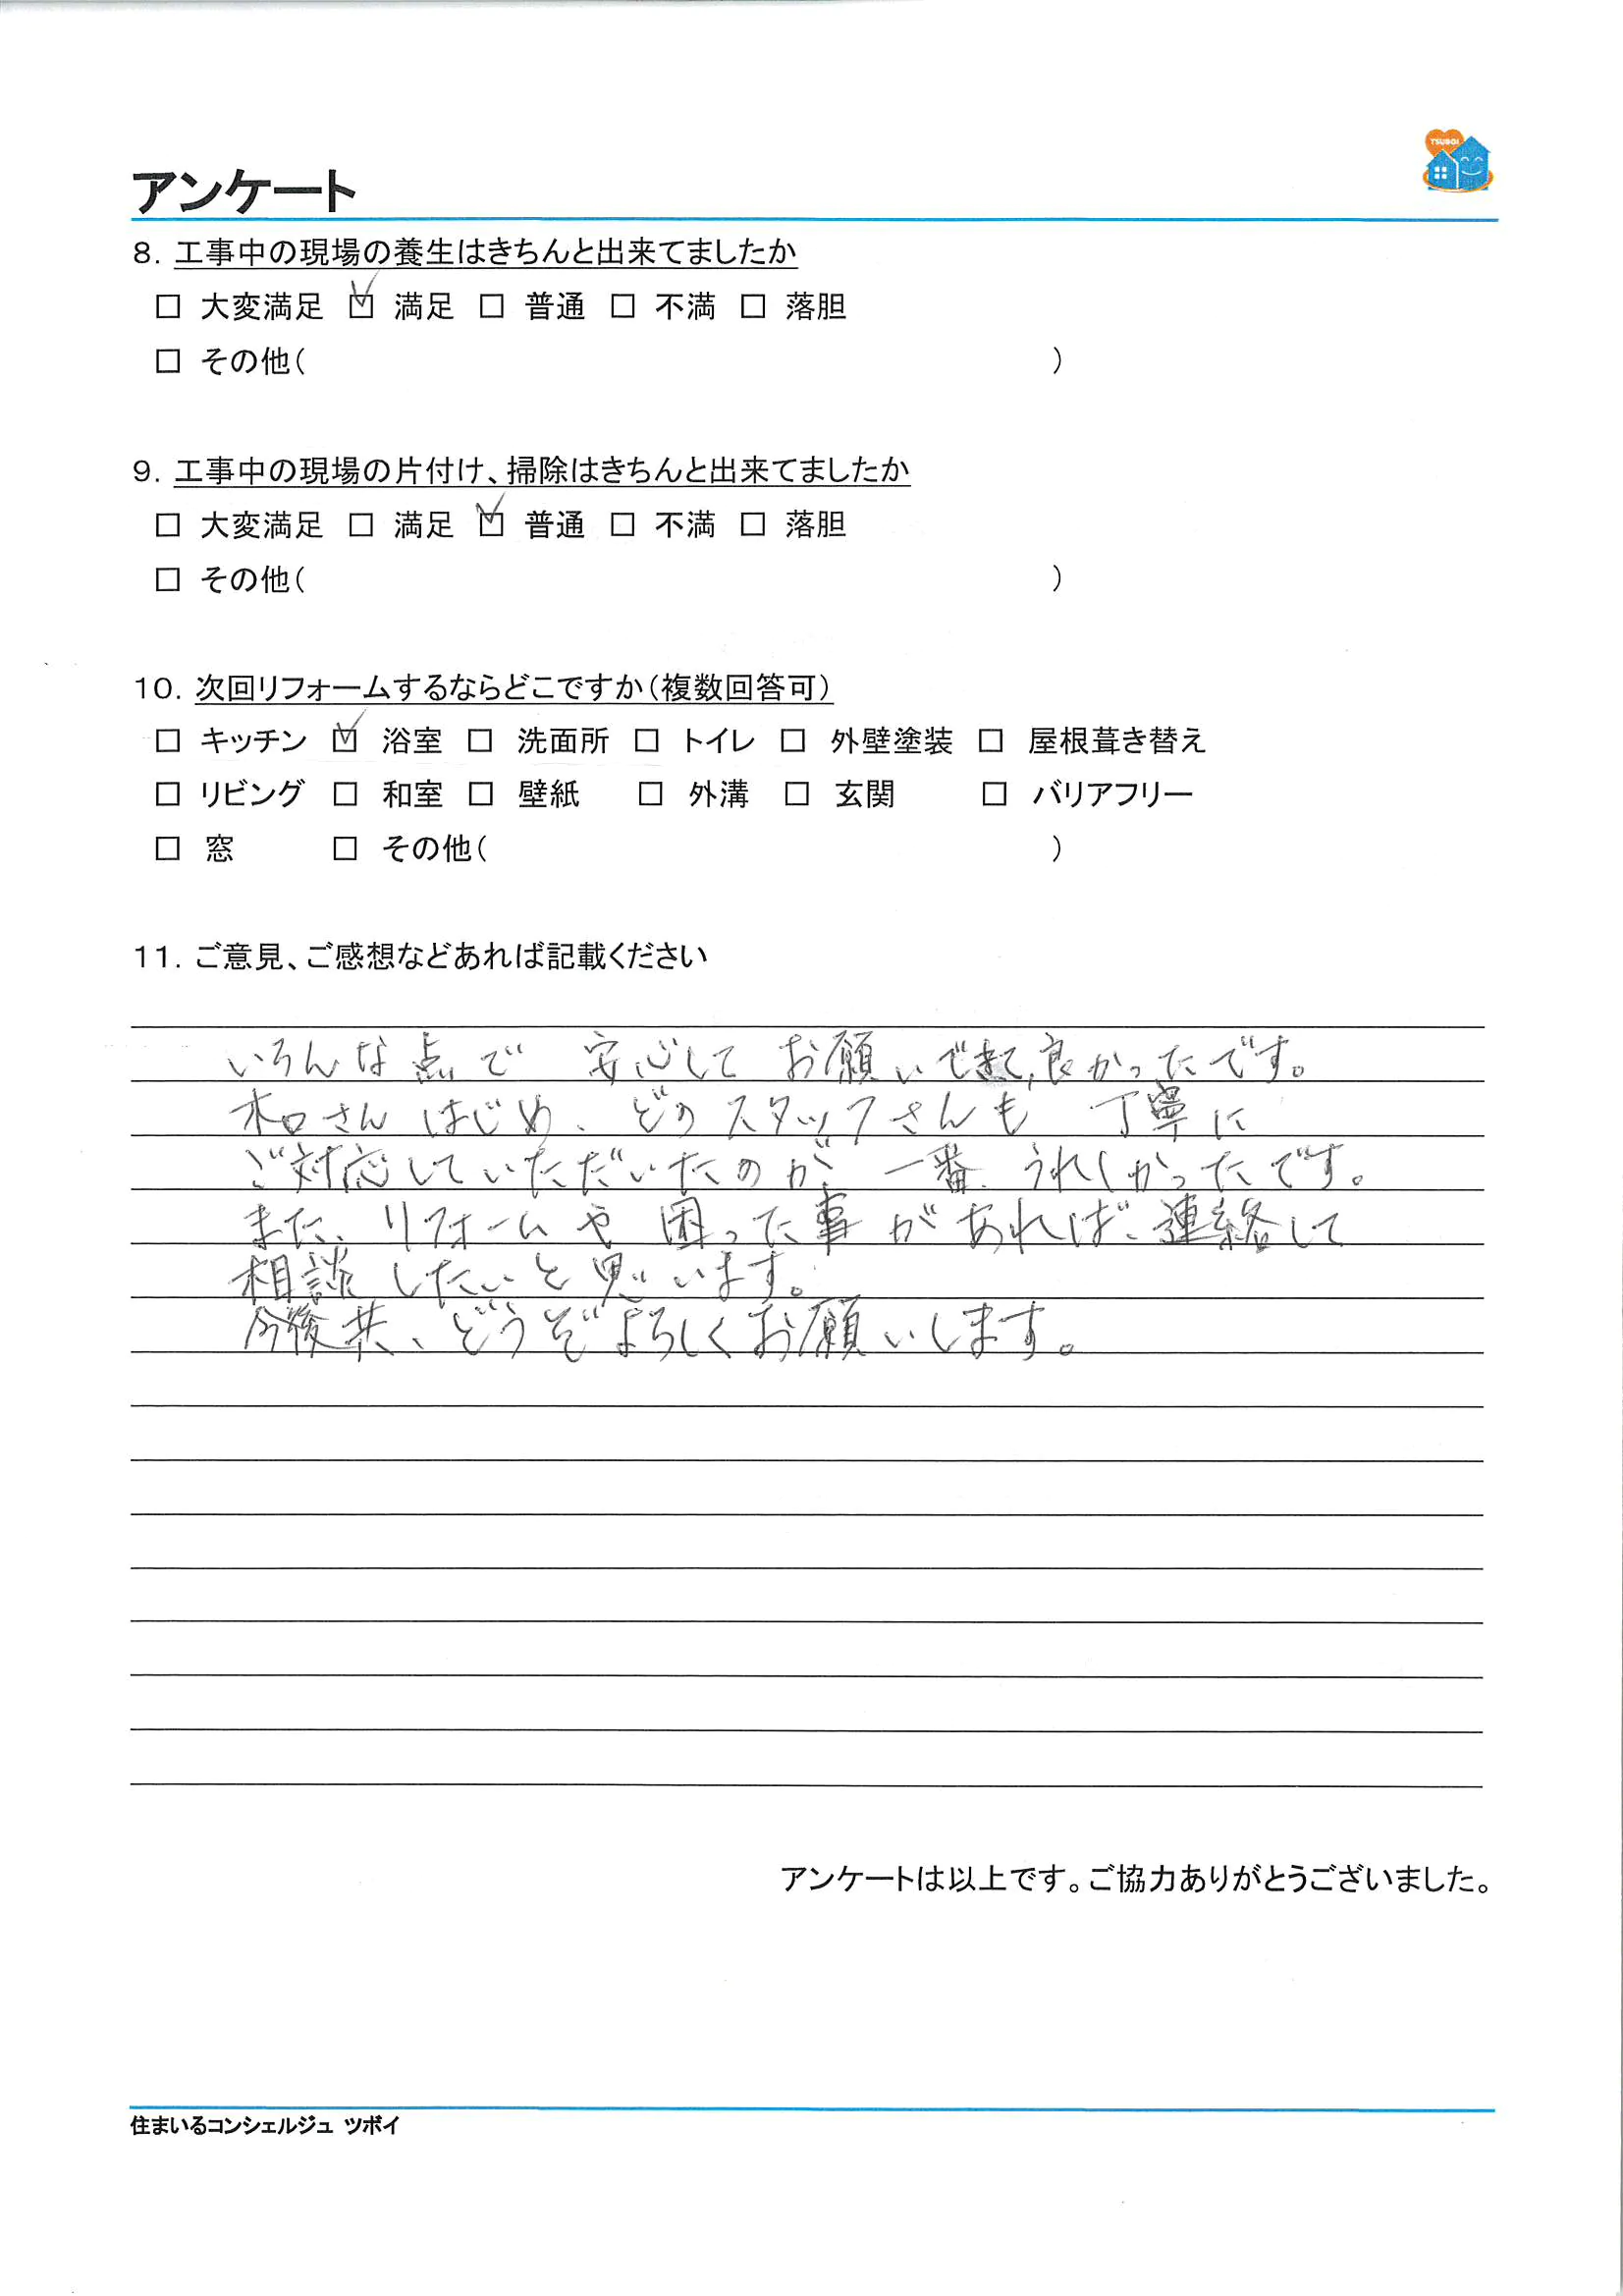 TSUBOI
アンケート
8. 工事中の現場の養生はきちんと出来てましたか
□ 大変満足 ☑ 満足 □ 普通 □ 不満 □ 落胆
□ その他( )
9. 工事中の現場の片付け、掃除はきちんと出来てましたか
□ 大変満足 □ 満足 ☑ 普通 □ 不満 □ 落胆
□ その他( )
10. 次回リフォームするならどこですか(複数回答可)
□ キッチン ☑ 浴室 □ 洗面所 □ トイレ □ 外壁塗装 □ 屋根葺き替え
□ リビング □ 和室 □ 壁紙 □ 外溝 □ 玄関 □ バリアフリー
□ 窓 □ その他( )
11. ご意見、ご感想などあれば記載ください
いろんな点で 安心して お願いできて、良かったです。
木口さん はじめ、どのスタッフさんも 丁寧に
ご対応していただいたのが、一番、うれしかったです。
また、リフォームや 困った事があれば、連絡して
相談 したいと思います。
今後共、どうぞよろしくお願いします。
アンケートは以上です。ご協力ありがとうございました。
住まいるコンシェルジュ ツボイ